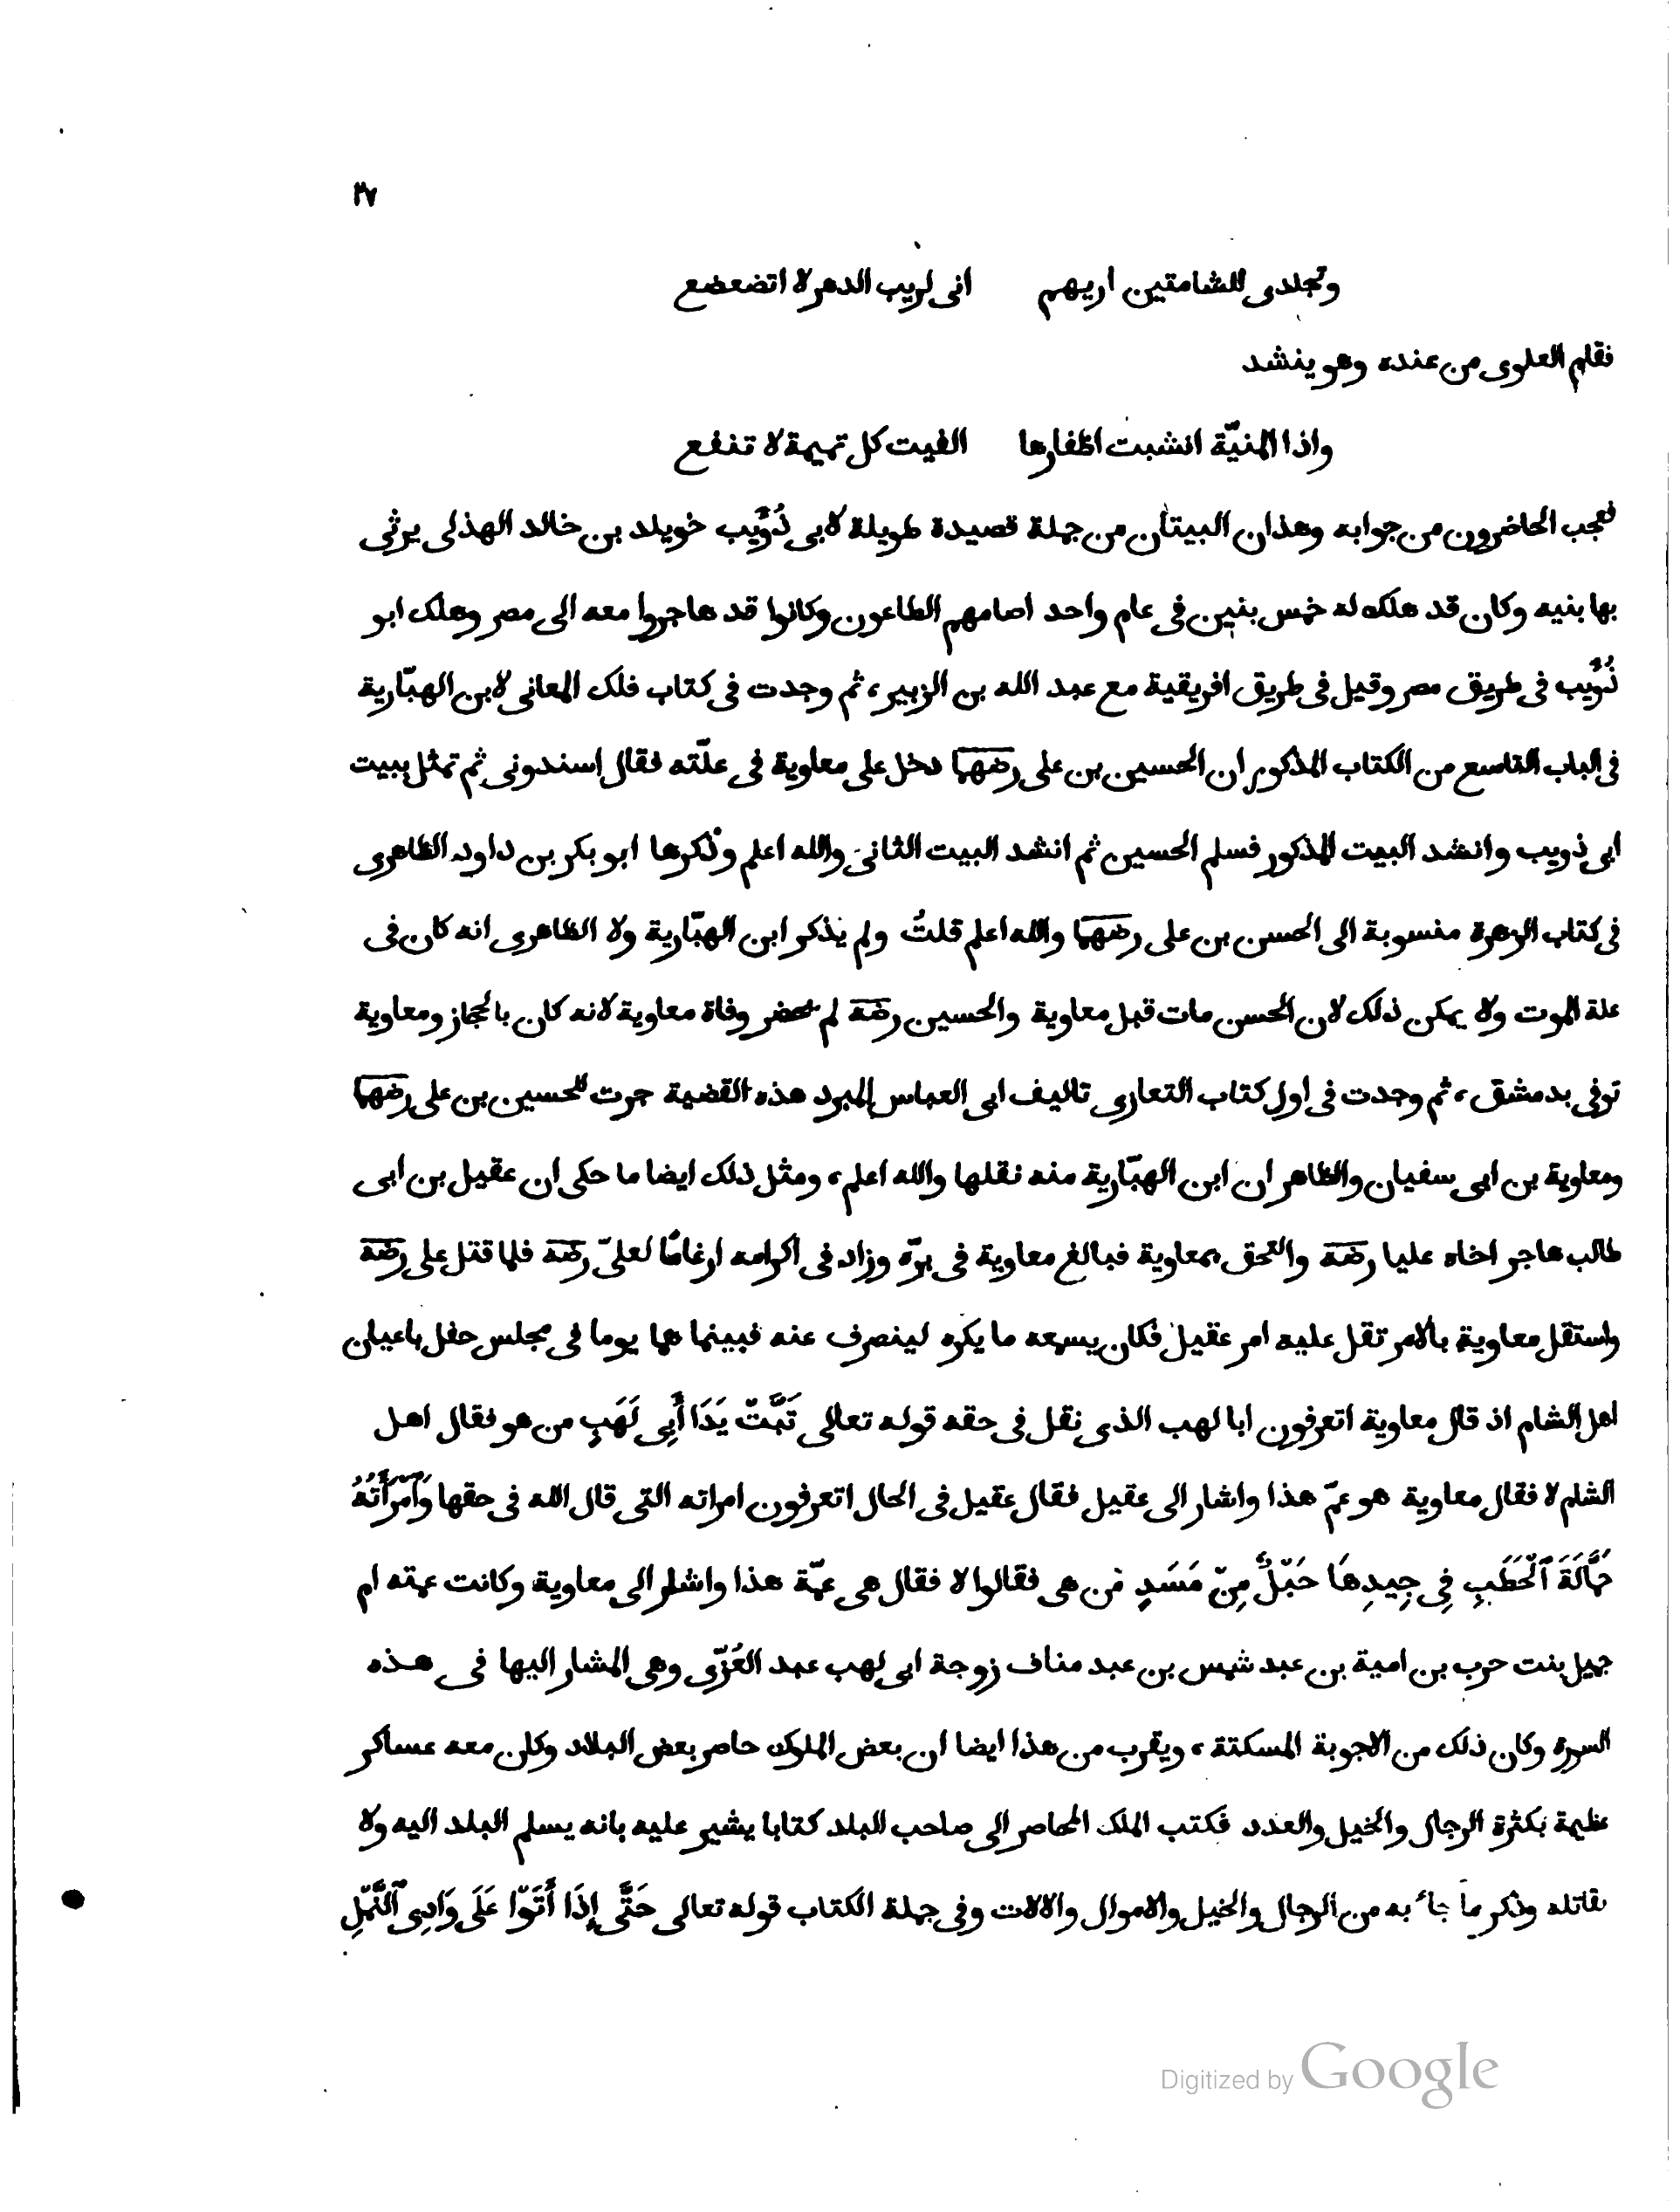 ٣٧
وتجلدى للشامتين اريهم انى لريب الدهر لا اتضعضع
فقام العلوى من عنده وهو ينشد
واذا المنيّة انشبت اظفارها الفيت كل تميمة لا تنفع
فعجب الحاضرون من جوابه وهذان البيتان من جملة قصيدة طويلة لابى ذُوَّيب خويلد بن خالد الهذلى يرثى
بها بنيه وكان قد هلك له خمس بنين فى عام واحد اصابهم الطاعون وكانوا قد هاجروا معه الى مصر وهلك ابو
ذُوَّيب فى طريق مصر وقيل فى طريق افريقية مع عبد الله بن الزبير، ثم وجدت فى كتاب فلك المعانى لابن الهبّارية
فى الباب التاسع من الكتاب المذكور ان الحسين بن على رضهما دخل على معاوية فى علّته فقال اسندونى ثم تمثل ببيت
ابى ذويب وانشد البيت المذكور فسلم الحسين ثم انشد البيت الثانى والله اعلم وذكرها ابو بكر بن داود الظاهرى
فى كتاب الزهرة منسوبة الى الحسن بن على رضهما والله اعلم قلتُ ولم يذكر ابن الهبّارية ولا الظاهرى انه كان فى
علة الموت ولا يمكن ذلك لان الحسن مات قبل معاوية والحسين رضه لم يحضر وفاة معاوية لانه كان بالحجاز ومعاوية
توفى بدمشق، ثم وجدت فى اول كتاب التعازى تاليف ابى العباس المبرد هذه القضية جرت للحسين بن على رضهما
ومعاوية بن ابى سفيان والظاهر ان ابن الهبّارية منه نقلها والله اعلم، ومثل ذلك ايضا ما حكى ان عقيل بن ابى
طالب هاجر اخاه عليا رضه والتحق بمعاوية فبالغ معاوية فى برّه وزاد فى اكرامه ارغامًا لعلىّ رضه فلما قتل على رضه
واستقل معاوية بالامر تقل عليه امر عقيل فكان يسمعه ما يكره لينصرف عنه فبينما هما يوما فى مجلس حفل باعيان
اهل الشام اذ قال معاوية اتعرفون ابا لهب الذى نقل فى حقه قوله تعالى تَبَّتْ يَدَا أَبِى لَهَبٍ من هو فقال اهل
الشام لا فقال معاوية هو عمّ هذا واشار الى عقيل فقال عقيل فى الحال اتعرفون امراته التى قال الله فى حقها وَٱمْرَأَتُهُ
حَمَّالَةَ ٱلْحَطَبِ فِى جِيدِهَا حَبْلٌ مِنْ مَسَدٍ مَن هى فقالوا لا فقال هى عمّة هذا واشار الى معاوية وكانت عمته ام
جميل بنت حرب بن امية بن عبد شمس بن عبد مناف زوجة ابى لهب عبد العُزّى وهى المشار اليها فى هذه
السورة وكان ذلك من الاجوبة المسكتة، ويقرب من هذا ايضا ان بعض الملوك حاصر بعض البلاد وكان معه عساكر
عظيمة بكثرة الرجال والخيل والعدد فكتب الملك المحاصر الى صاحب البلد كتابا يشير عليه بانه يسلم البلد اليه ولا
يقاتله وذكر ما جاء به من الرجال والخيل والاموال والالات وفى جملة الكتاب قوله تعالى حَتَّى إِذَا أَتَوْا عَلَى وَادِى ٱلنَّمْلِ
Digitized by Google